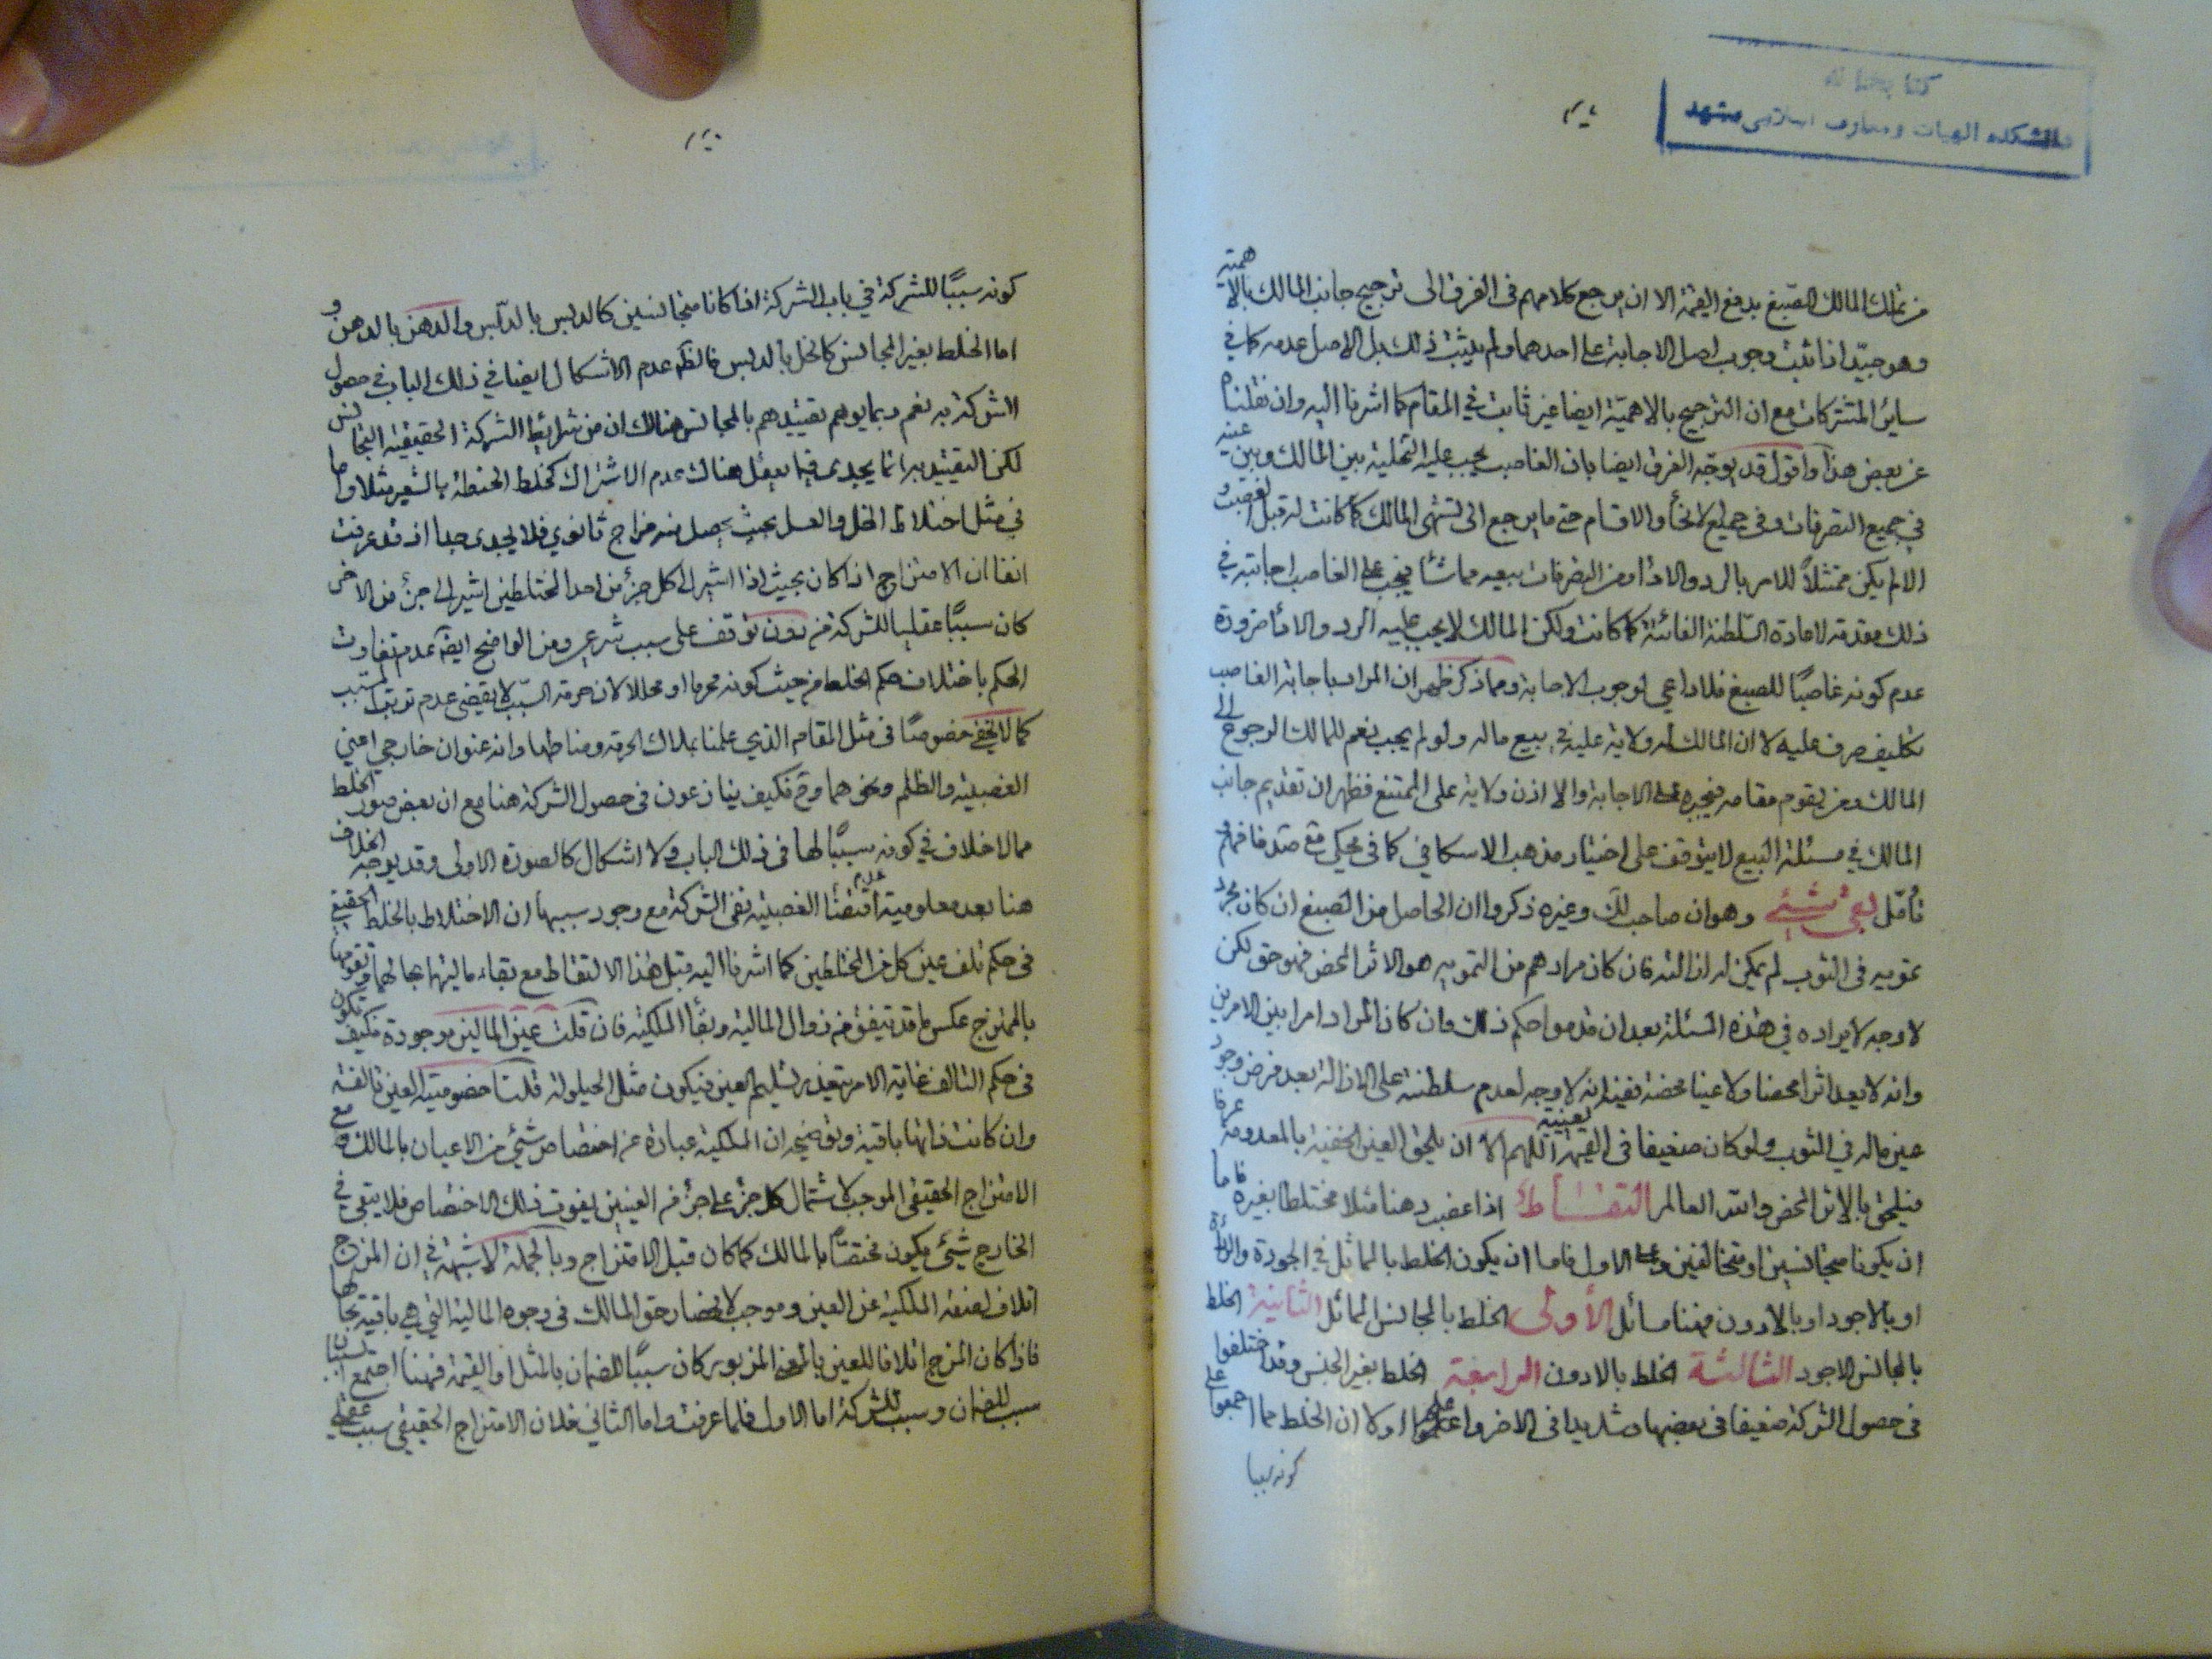 دانشکده الهیات و معارف اسلامی مشهد
من تملك المالك الصبغ بدفع القيمة الا ان يرجع كلامهم فى الفرق الى ترجيح جانب المالك بالاهمية
وهو جيّد اذا ثبت وجوب اصل الاجابة على احدهما ولم يثبت ذلك بل الاصل عدمه كما في
ساير المشتركات مع ان الترجيح بالاهميّة ايضا غير ثابت في المقام كما اشرنا اليه وان نقلناه
عن بعض هذا واقول قد يوجّه الفرق ايضا بان الغاصب يجب عليه التخلية بين المالك وبين عينه
في جميع التصرفات وفى جميع الانحاء والاقسام حتى ما يرجع الى تشهى المالك كما كانت له قبل الغصب و
الا لم يكن ممتثلاً للامر بالرد والاداء ومن التصرفات بيعه مما شاء فيجب على الغاصب اجابته في
ذلك مقدمة لاعادة السّلطنة الفائتة كما كانت ولكن المالك لا يجب عليه الرد والاداء ضرورة
عدم كونه غاصبًا للصبغ فلا داعي لوجوب الاجابة ومما ذكر ظهر ان المراد باجابة الغاصب
تكليف صرف عليه لا ان المالك له ولاية عليه في بيع ماله ولو لم يجب نعم للمالك الرجوع الى
المالك ومن يقوم مقامه فيجبره على الاجابة والا اذن ولاية على الممتنع فظهر ان تقديم جانب
المالك في مسئلة البيع لا يتوقف على اختيار مذهب الاسكافي كما فى محكى مع صد فافهم و
تأمّل بقي شيئ وهو ان صاحب لك وغيره ذكروا ان الحاصل من الصبغ ان كان مجرد
تمويه فى الثوب لم يمكن له ازالته فان كان مرادهم من التمويه هو الاثر المحض فهو حق لكن
لا وجه لايراده في هذه المسئلة بعد ان قدموا حكم ذلك وان كان المراد امرا بين الامرين
وانه لا يعد اثرا محضا ولا عينا محضة ففيه انه لا وجه لعدم سلطنته على الازالة بعد فرض وجود
عين ماله في الثوب ولو كان ضعيفا فى القيمة اللهم الا ان يلحق العين الخفية بالمعدومة عرفا
فيلحق بالاثر المحض والله العالم التقاط اذا غصب دهنا مثلا مختلطا بغيره فاما
ان يكونا متجانسين او متخالفين وعلى الاول فاما ان يكون الخلط بالمماثل في الجودة والردائة
او بالاجود او بالادون فهنا مسائل الأولى الخلط بالمجانس المماثل الثانية الخلط
بالمجانس الاجود الثالثة الخلط بالادون الرابعة الخلط بغير الجنس وقد اختلفوا
فى حصول الشركة ضعيفا فى بعضها وشديدا فى الاخر واعلم اولا ان الخلط مما اجمعوا على
كونه سببا
كونه سببًا للشركة في باب الشركة اذا كانا متجانسين كالدبس بالدبس والدهن بالدهن و
اما الخلط بغير المجانس كالخل بالدبس فالظ عدم الاشكال ايضا في ذلك الباب في حصول
الشركة به نعم ربما يوهم تقييدهم بالمجانس هنالك ان من شرائط الشركة الحقيقية التجانس
لكن التقييد به انما يجدى فيما يعقل هناك عدم الاشتراك كخلط الحنطة بالشعير مثلا واما
في مثل اختلاط الخل والعسل بحيث يحصل منه مزاج ثانوي فلا يجدى جدا اذ قد عرفت
انفا ان الامتزاج اذا كان بحيث اذا اشير الى كل جزء من احد المختلطين اشير الى جزء من الاخر
كان سببًا عقليا للشركة من دون توقف على سبب شرعي ومن الواضح ايضا عدم تفاوت
الحكم باختلاف حكم الخلط من حيث كونه محرما او محللا لان حرمة السّبب لا يقتضى عدم ترتب المسبّب
كما لا يخفى خصوصًا فى مثل المقام الذي علمنا بملاك الحرمة ومناطها وانه عنوان خارجي اعني
الغصبية والظلم ونحوهما وح فكيف يتنازعون فى حصول الشركة هنا مع ان بعض صور الخلط
مما لا خلاف في كونه سببًا لها فى ذلك الباب ولا اشكال كالصورة الاولى وقد يوجه الخلاف
هنا بعد معلومية عدم اقتضاء الغصبية نفى الشركة مع وجود سببها ان الاختلاط بالخلط الحقيقي
فى حكم تلف عين كل من المختلطين كما اشرنا اليه قبل هذا الالتقاط مع بقاء ماليتها بحالهما وتقومها
بالممتزج عكس ما قد يتفق من زوال المالية وبقاء الملكية فان قلت عين المالين موجودة فكيف تكون
فى حكم التالف غاية الامر تعذر تسليم العين فيكون مثل الحيلولة قلنا خصوصية العين تالفة
وان كانت ذاتها باقية وتوضيحه ان الملكية عبارة عن اختصاص شيئ من الاعيان بالمالك و مع
الامتزاج الحقيقى الموجب لاشتمال كل جزء على جزء من العينين يفوت ذلك الاختصاص فلا يبقى في
الخارج شيئ يكون مختصًا بالمالك كما كان قبل الامتزاج وبالجملة لا شبهة في ان المزج
اتلاف لصفة الملكية عن العين وموجب لانحصار حق المالك فى وجوه المالية التي هي باقية بحالها
فاذا كان المزج اتلافا للعين بالمعنى المزبور كان سببًا للضمان بالمثل او القيمة فههنا اجتمع سببان
سبب للضمان وسبب للشركة اما الاول فلما عرفت واما الثاني فلان الامتزاج الحقيقى سبب عقلى